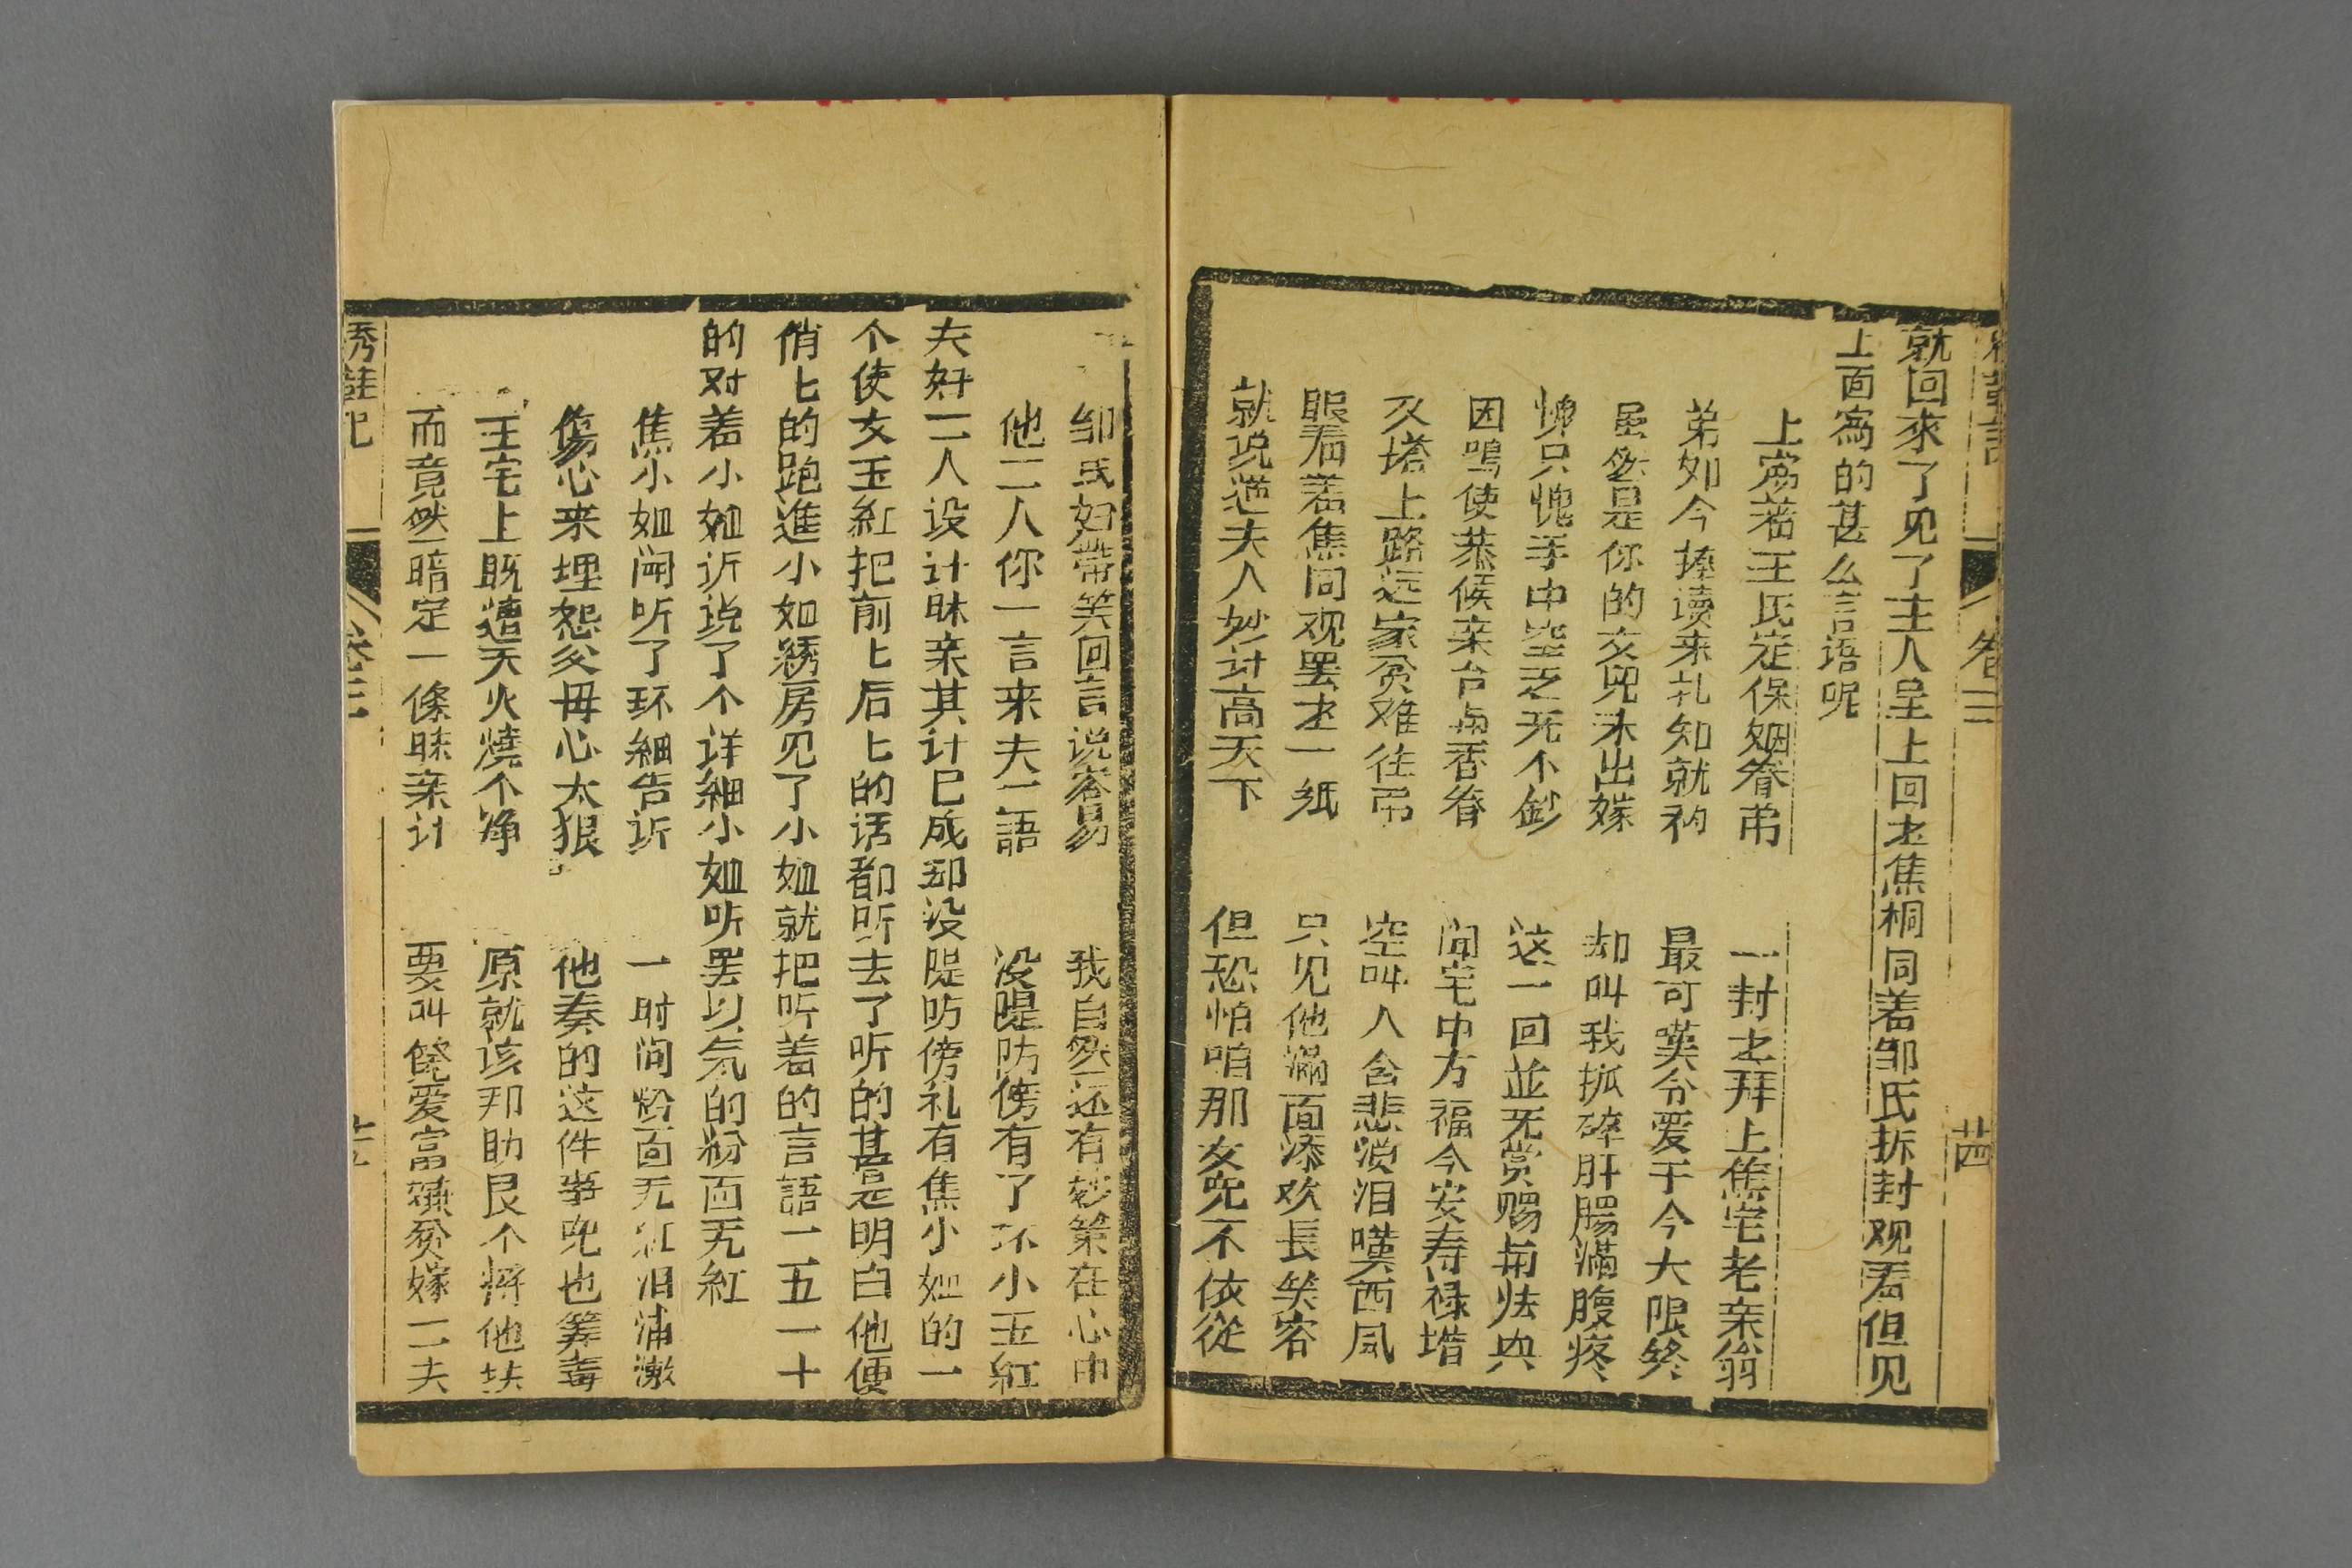 卷三 十四
就回來了见了主人呈上回才焦桐同着邹氏拆封观看但见
上面寫的甚么言语呢
上寫着王氏定保姻眷弟 一封才拜上焦宅老亲翁
弟如今捧读来札知就衲 最可嘆令爱于今大限终
虽然是你的女児未出嫁 却叫我抓碎肝腸滿腹疼
愧只愧手中空乏无不鈔 这一回並无赏赐
因鳴使恭候亲台
又塔上路远家贫难往弔 空叫人含悲淚泪嘆西風
眼看着焦同观罢才一纸 只见他滿面添欢長笑容
就说道夫人妙计高天下 但恐怕咱那女児不依從
邹氏妇帶笑回言说容易 我自然还有妙策在心中
他二人你一言来夫一語 没隄防傍有了环小玉紅
夫奸二人设计昧亲其计已成却没隄防傍礼有焦小姐的一
个使女玉紅把前匕后匕的话都听去了听的甚是明白他便
俏匕的跑進小如綉房见了小姐就把听着的言語一五一十
的对着小姐诉说了个详細小姐听罢以氣的粉面无紅
焦小姐闻听了环細告诉 一时间粉面无紅泪浦潵
傷心来埋怨父母心太狠 他奏的这件事児也筭毒
王宅上既遭天火燒个净 原就该邦助艮个将他扶
而竟然暗定一條昧亲计 要叫俺爱富嫌贫嫁二夫
卷三